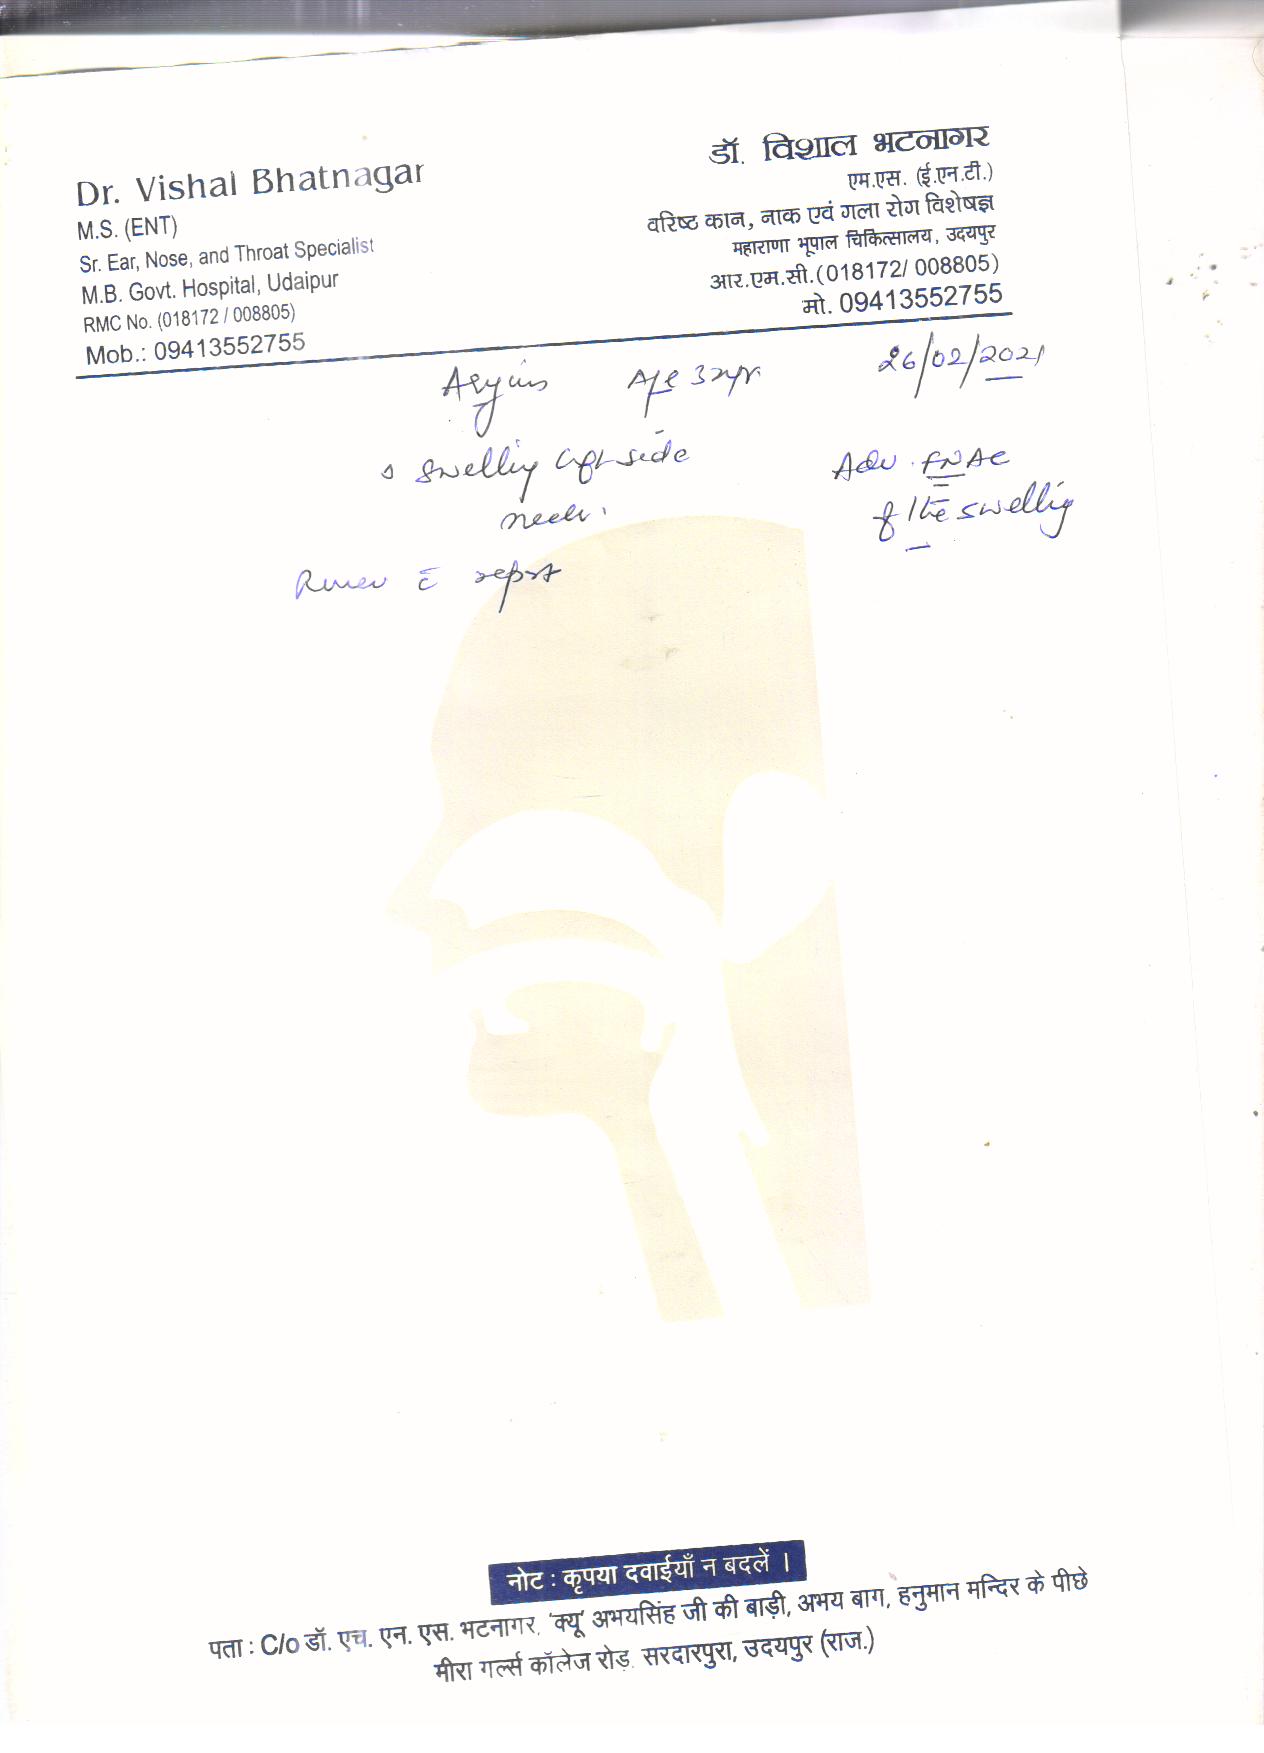 Dr. Vishal Bhatnagar
M.S. (ENT)
Sr. Ear, Nose, and Throat Specialist
M.B. Govt. Hospital, Udaipur
RMC No. (018172 / 008805)
Mob.: 09413552755
डॉ. विशाल भटनागर
एम.एस. (ई.एन.टी.)
वरिष्ठ कान, नाक एवं गला रोग विशेषज्ञ
महाराणा भूपाल चिकित्सालय, उदयपुर
आर.एम.सी.(018172/ 008805)
मो. 09413552755
Age 32yr 26/02/2021
swelling left side
neck.
Adv. FNAC
of the swelling
Review c̄ report
नोट : कृपया दवाईयाँ न बदलें ।
पता : C/o डॉ. एच. एन. एस. भटनागर, 'क्यू' अभयसिंह जी की बाड़ी, अभय बाग, हनुमान मन्दिर के पीछे
मीरा गर्ल्स कॉलेज रोड़, सरदारपुरा, उदयपुर (राज.)